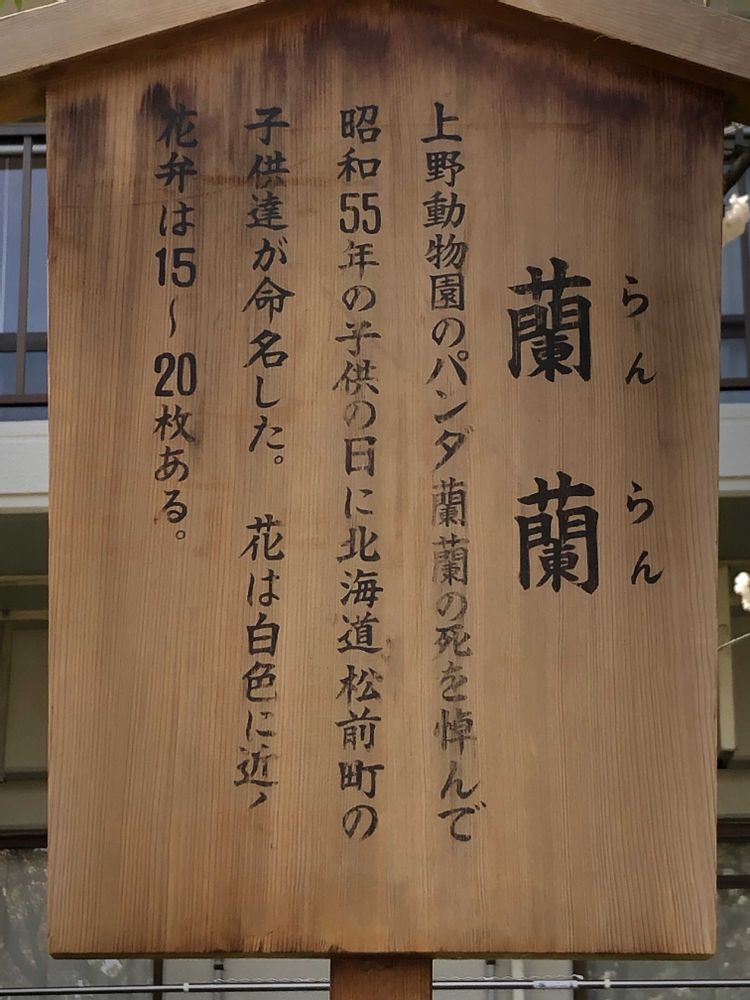 らんらん
蘭蘭
上野動物園のパンダ蘭蘭の死を悼んで
昭和55年の子供の日に北海道松前町の
子供達が命名した。 花は白色に近く
花弁は15~20枚ある。